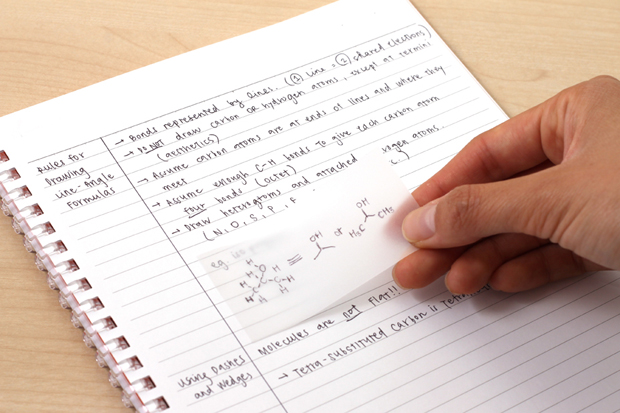 Rules for
Drawing
Line-Angle
Formulas
→ Bonds represented by lines. (① line = ② shared electrons)
→ DO NOT draw carbon or hydrogen atoms, except at termini
(aesthetics)
→ Assume carbon atoms are at ends of lines and where they
meet
→ Assume enough C-H bonds to give each carbon atom
four bonds (octet)
→ Draw heteroatoms and attached
(N, O, S, P, F
atoms.
eg.
OH
or
OH
H₃C
CH₃
H
O
H
H
C
C
H
H
H
Using Dashes
and Wedges
Molecules are not flat!!
→ Tetra-substituted carbon is